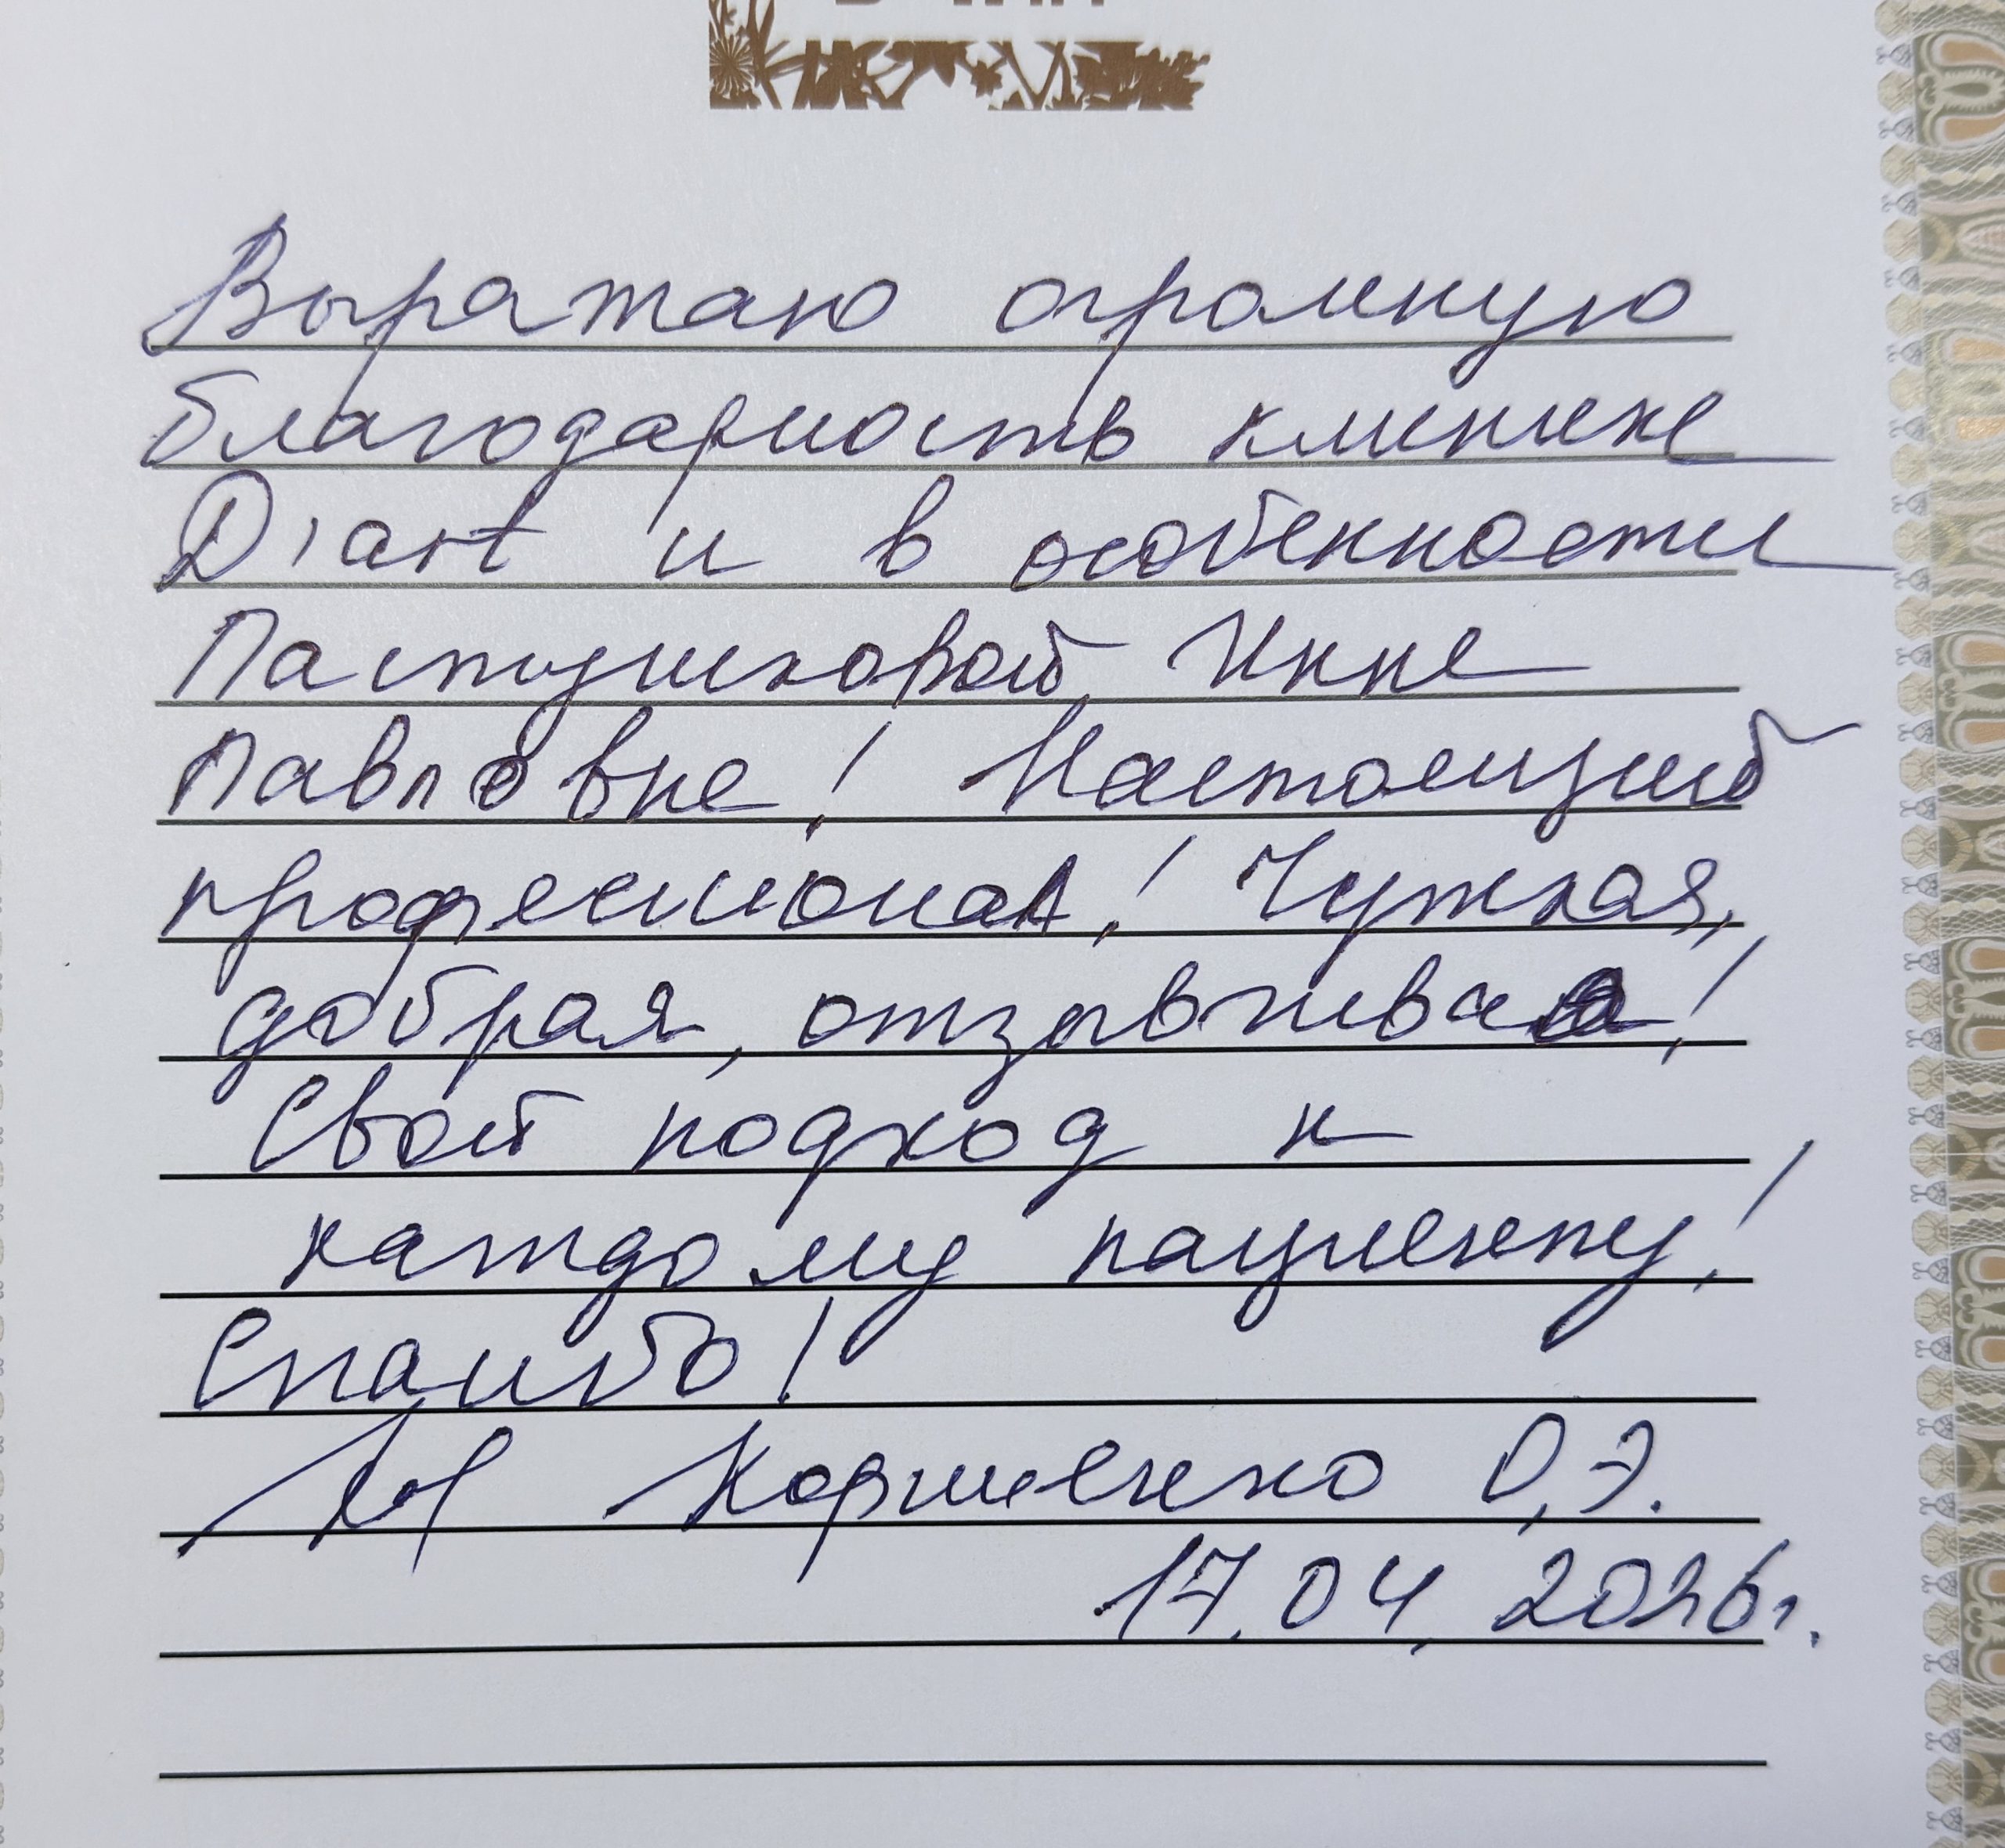 Выражаю огромную
благодарность клинике
Diart и в особенности
Пастушковой Инне
Павловне! Настоящий
профессионал! Чуткая,
добрая, отзывчивая!
Свой подход к
каждому пациенту!
Спасибо!
Коршенко О.Э.
17.04.2026г.